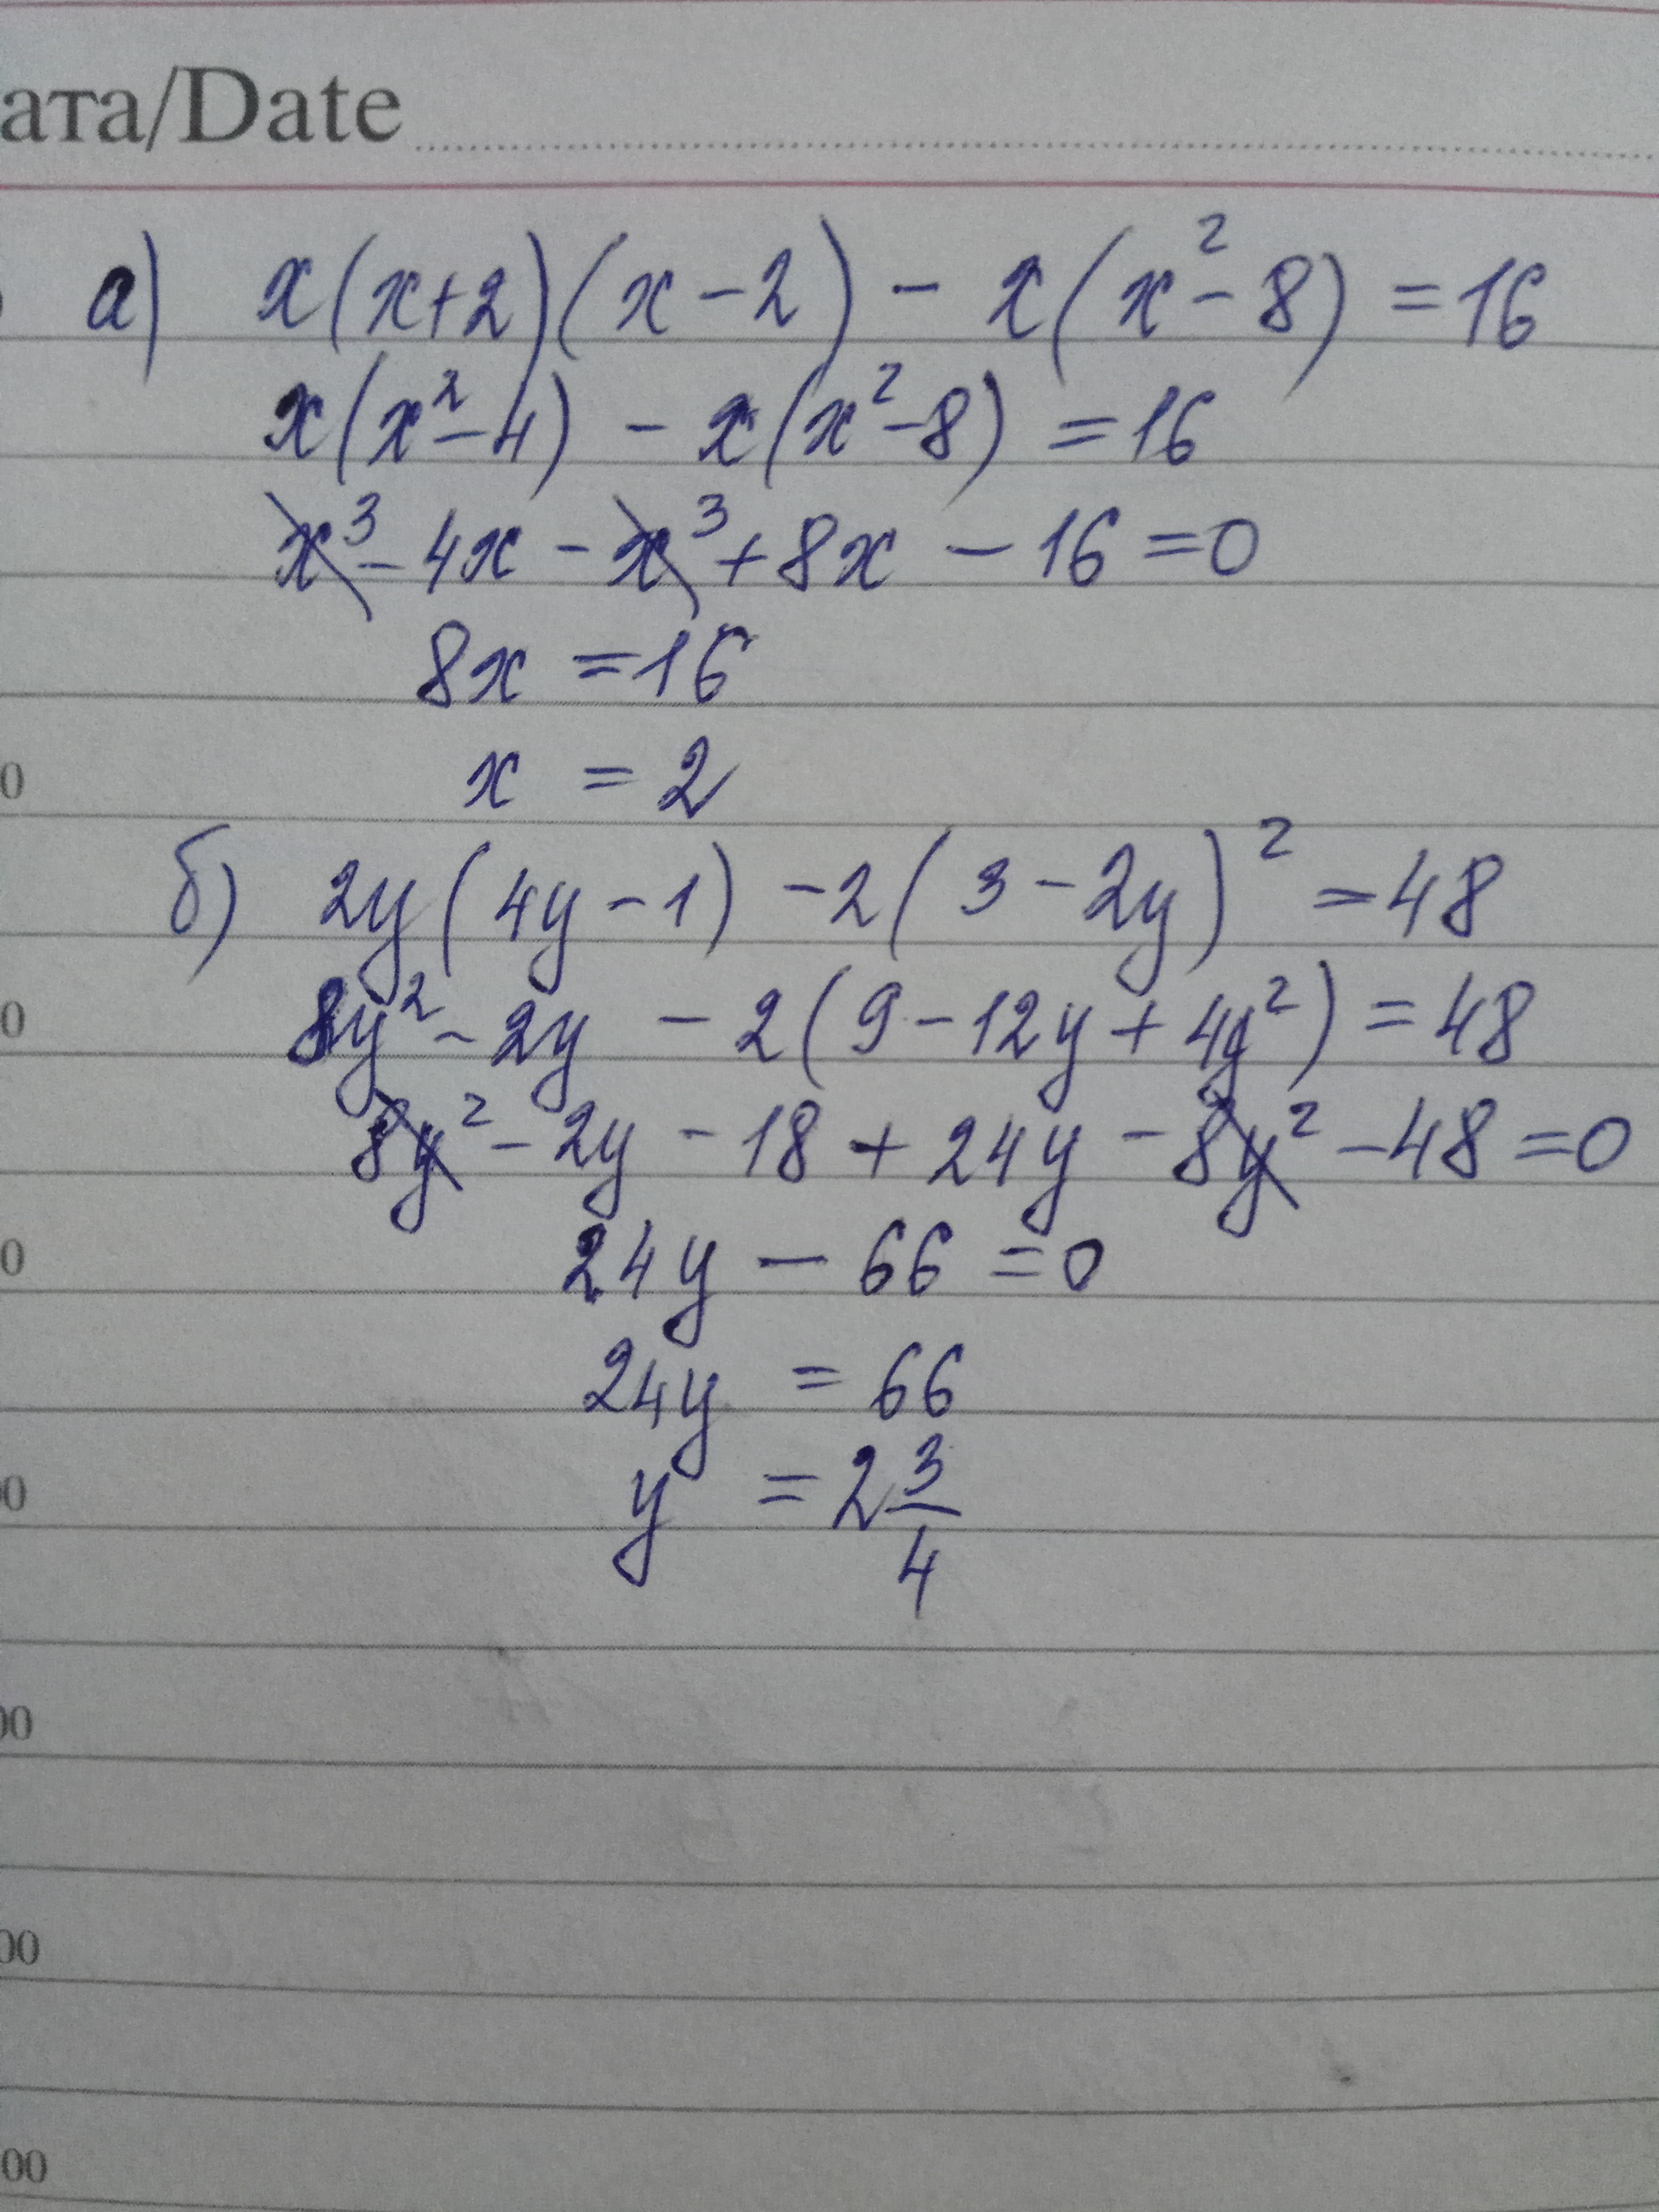 ата/Date
а) x(x+2)(x-2) - x(x²-8) = 16
x(x²-4) - x(x²-8) = 16
x³-4x - x³+8x - 16 = 0
8x = 16
x = 2
б) 2y(4y-1) -2(3-2y)² = 48
8y²-2y - 2(9-12y+4y²) = 48
8y²-2y-18 + 24y - 8y² - 48 = 0
24y - 66 = 0
24y = 66
y = 2 3/4
0
0
0
00
00
00
00